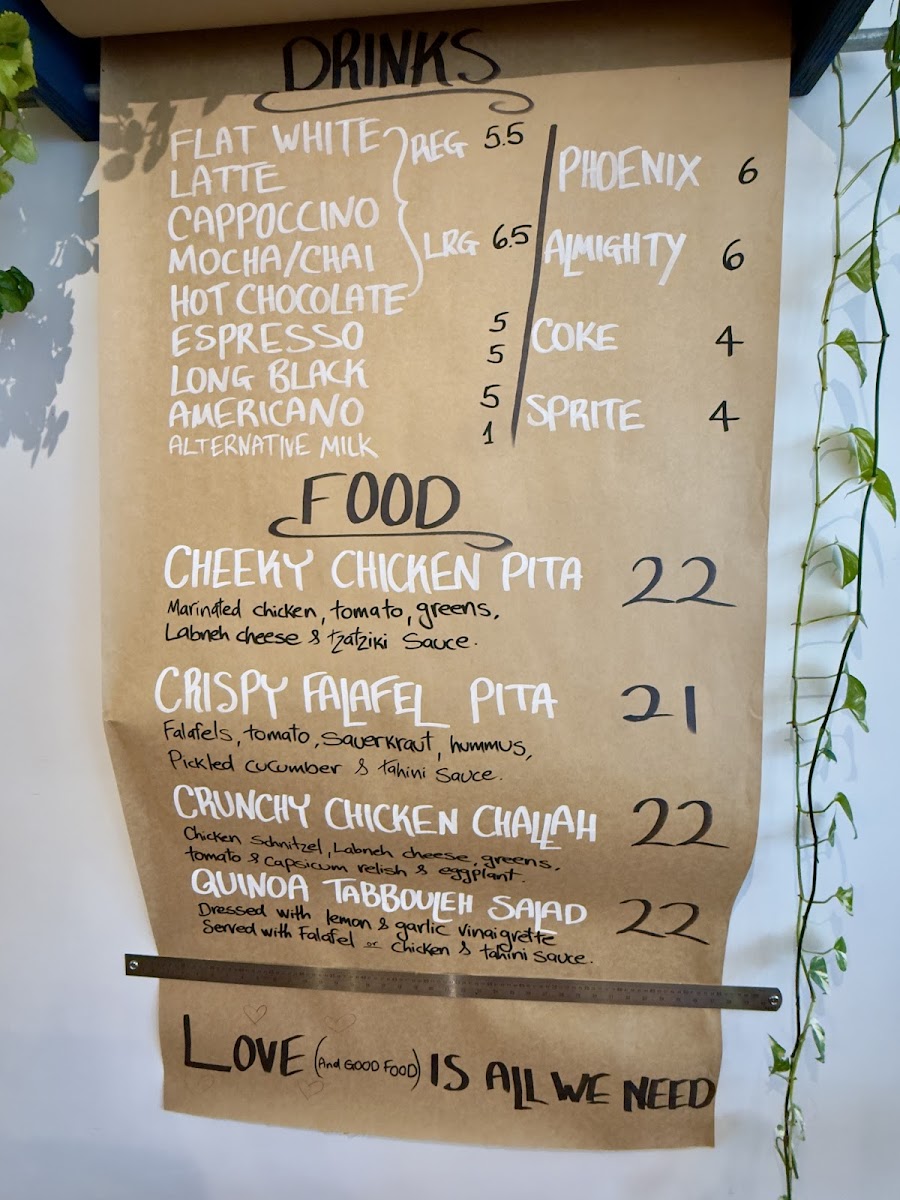 DRINKS
FLAT WHITE
LATTE
CAPPOCCINO
MOCHA/CHAI
HOT CHOCOLATE
REG 5.5
LRG 6.5
ESPRESSO 5
LONG BLACK 5
AMERICANO 5
ALTERNATIVE MILK 1
PHOENIX 6
ALMIGHTY 6
COKE 4
SPRITE 4
FOOD
CHEEKY CHICKEN PITA 22
Marinated chicken, tomato, greens,
Labneh cheese & tzatziki sauce.
CRISPY FALAFEL PITA 21
Falafels, tomato, sauerkraut, hummus,
Pickled cucumber & tahini sauce.
CRUNCHY CHICKEN CHALLAH 22
Chicken Schnitzel, Labneh cheese, greens,
tomato & capsicum relish & eggplant.
QUINOA TABBOULEH SALAD 22
Dressed with lemon & garlic vinaigrette
Served with Falafel or Chicken & tahini sauce.
LOVE (And GOOD FOOD) IS ALL WE NEED